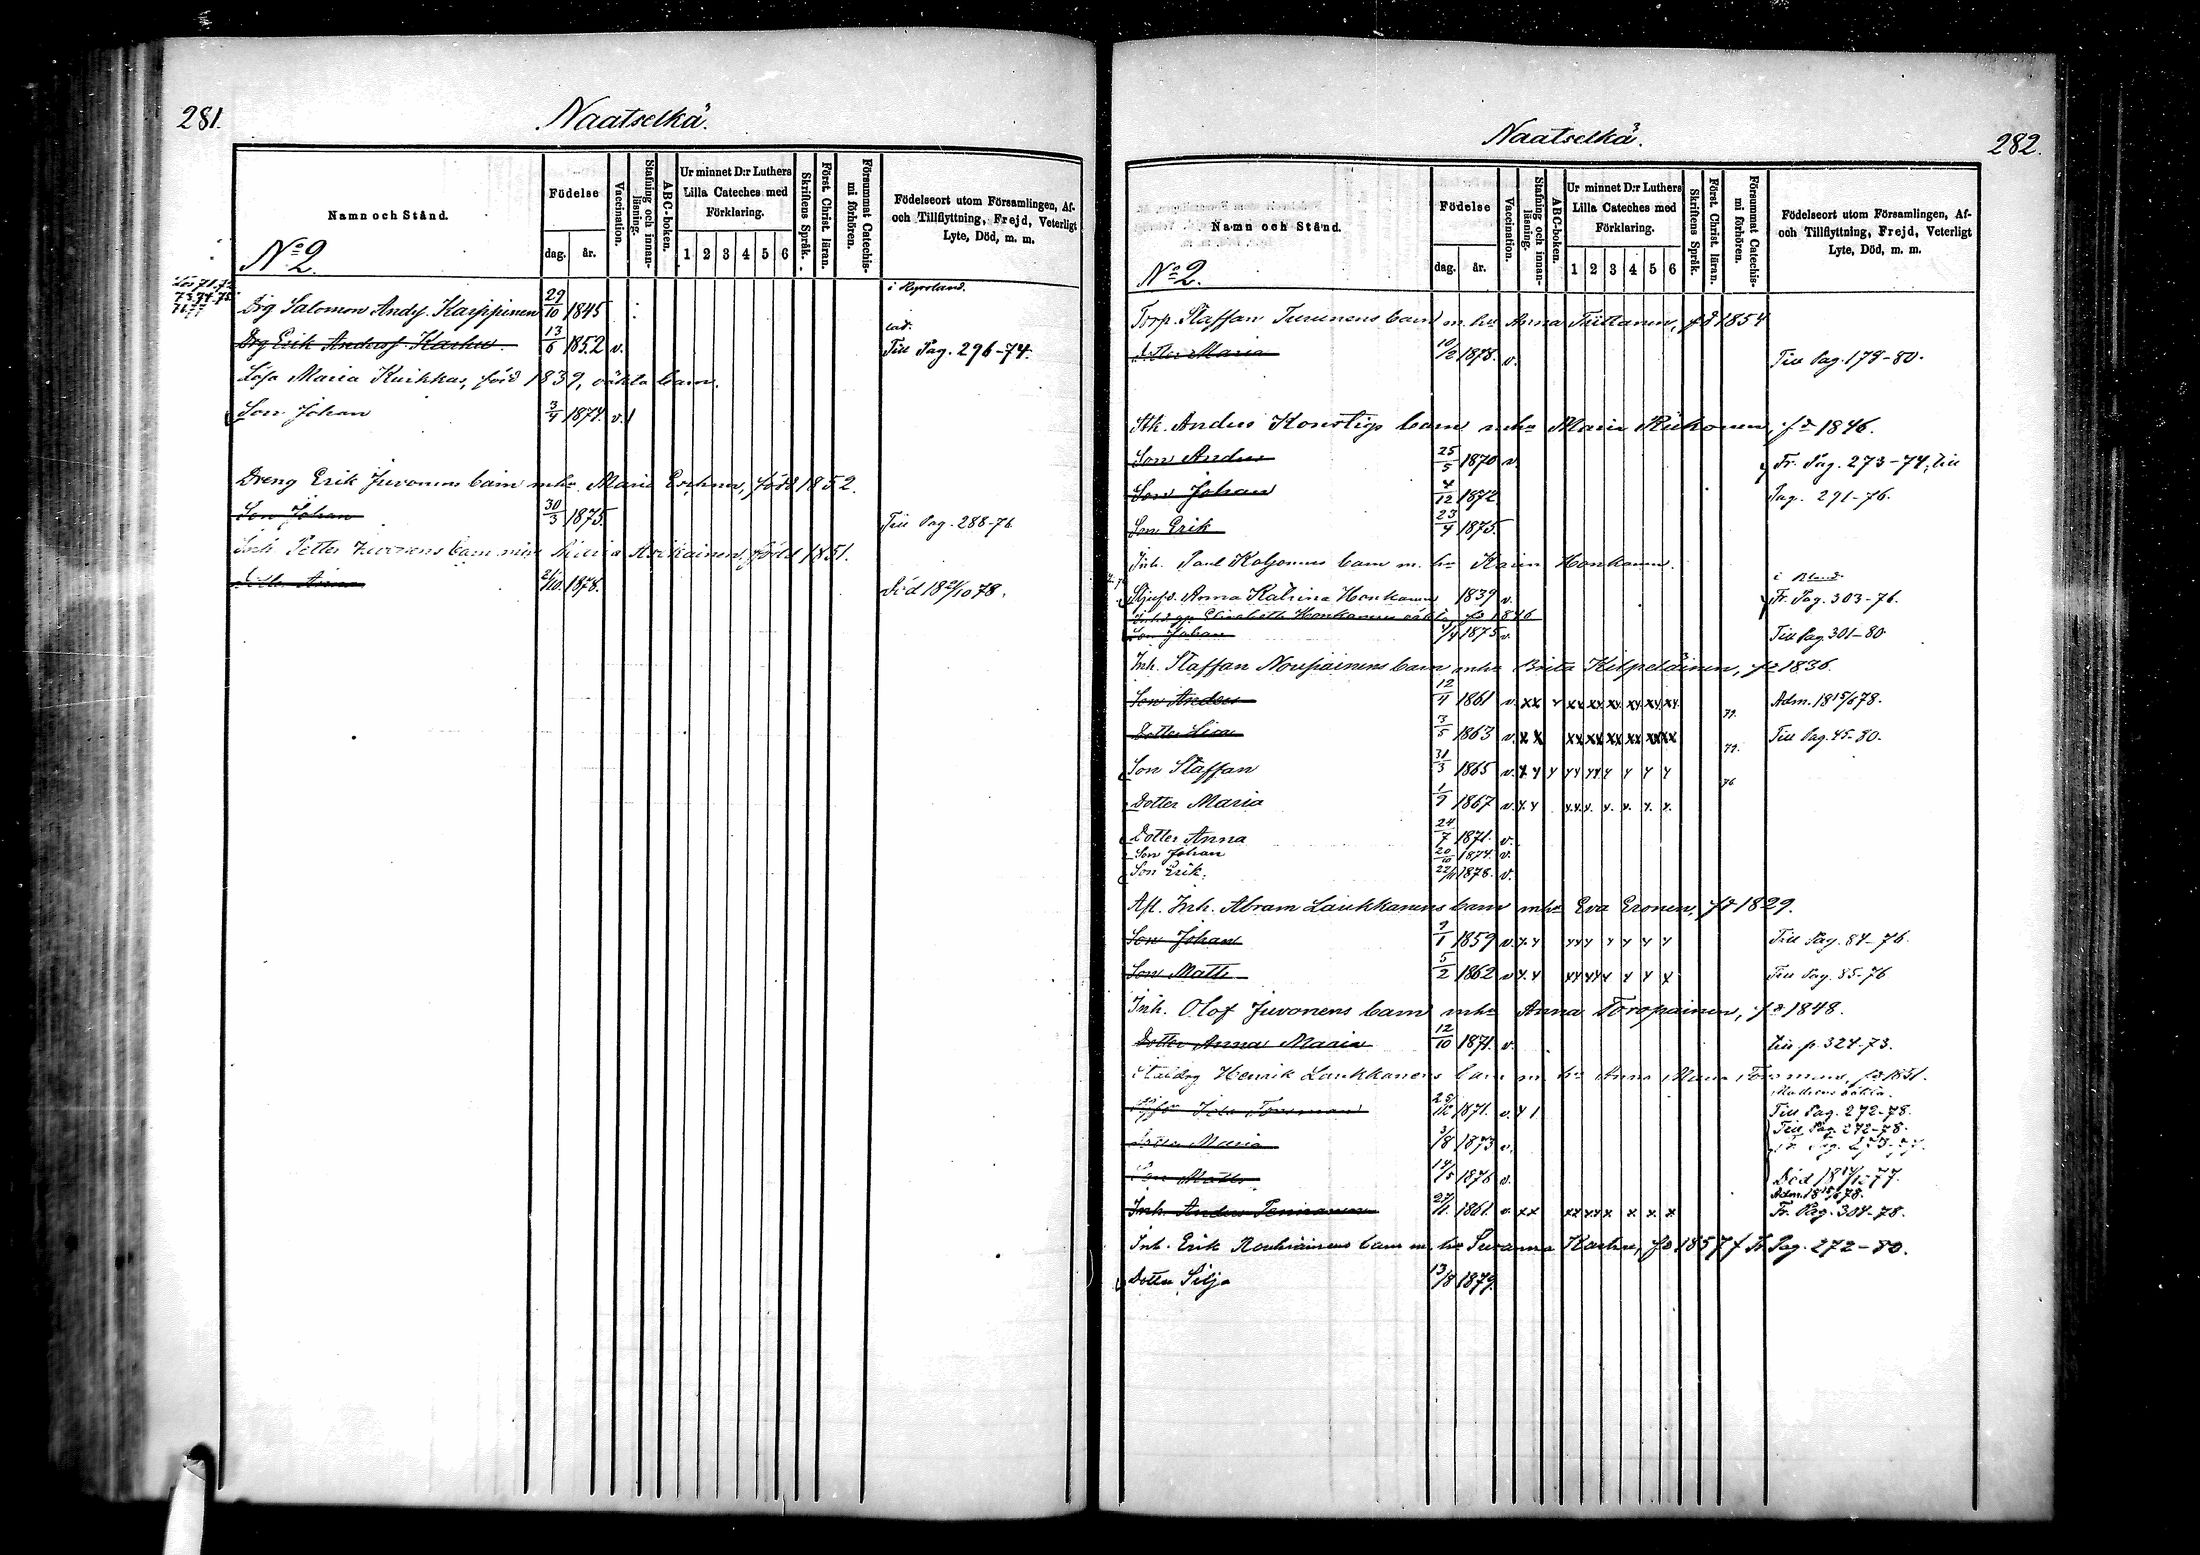 281.
Naatselkä.
Namn och Stånd.
Födelse
dag.
år.
Vaccination.
Stafning och innan-
läsning.
ABC-boken.
Ur minnet D:r Luthers
Lilla Cateches med
Förklaring.
1 2 3 4 5 6
Skriftens Språk.
Först. Christ. läran.
Försummat Catechis-
mi förhören.
Födelseort utom Församlingen, Af-
och Tillflyttning, Frejd, Veterligt
Lyte, Död, m. m.
No 2.
i Ryssland.
Drg Salomon Andsf. Karppinen 29/10 1845
Drg Erik Andersf Karhu 13/6 1852 v. Till Pag. 296-74.
Lösa Maria Kuikkas, född 1839, oäkta barn.
Son Johan 3/4 1874. v.
Dreng Erik Juvonens barn m. ha Maria Eronen, född 1852.
Son Johan 30/3 1875. Till Pag. 288-76
Inh. Petter Juvonens barn född 1851.
Dotter Anna 2/10 1878. Död 18 21/10 78.
282.
Naatselkä.
Namn och Stånd.
Födelse
dag.
år.
Vaccination.
Stafning och innan-
läsning.
ABC-boken.
Ur minnet D:r Luthers
Lilla Cateches med
Förklaring.
1 2 3 4 5 6
Skriftens Språk.
Först. Christ. läran.
Försummat Catechis-
mi förhören.
Födelseort utom Församlingen, Af-
och Tillflyttning, Frejd, Veterligt
Lyte, Död, m. m.
No 2.
Torp. Staffan Turunens barn m. ha Anna Tiittanen, fd 1854
Dotter Maria 10/2 1878. v. Till Pag. 179-80.
Anders Konstigs barn m ha Maria Riikonen, fd 1846.
Son Anders 25/5 1870 v. Fr. Pag. 273-74, till
Son Johan 4/12 1872 Pag. 291-76.
Son Erik 23/4 1875.
Inh. Paul Koljonens barn m. ha Karin Honkanen.
Stjufd. Anna Katrina Honkanen 1839 v. Fr. Pag. 303-76.
Elisabeth Honkanens fd 1846
Son Johan 4/4 1875 v. Till Pag. 301-80.
Inh. Staffan Nousiainens barn m ha Brita Kilpeläinen, fd 1836.
Son Anders 12/4 1861 v. xx x xx xx xx xx xx xx Adm. 18 15/6 78.
Dotter Lisa 3/5 1863 v. x x xx xx xx xx xx xx 77. Till Pag. 45-80.
Son Staffan 31/3 1865 v. 77.
Dotter Maria 1/9 1867 v. 76
Dotter Anna 24/7 1871. v.
Son Johan 20/10 1874. v.
Son Erik. 22/11 1878. v.
Afl. Inh. Abram Laukkanens barn m ha Eva Eronen, fd 1829.
Son Johan 9/1 1859 v. Till Pag. 84-76.
Son Matts 5/2 1862 v Till Pag. 85-76
Inh. Olof Juvonens barn m ha Anna Toropainen, fd 1848.
Dotter Anna Maria 12/10 1871. v. till p. 324-73.
Henrik Laukkanens barn m. ha Anna Maria fd 1851.
1871. v. Till Pag. 272-78.
Dotter Maria 3/8 1873 v. Till Pag. 272-78.
Son Matts 14/5 1876 v. Död 18 14/12 77.
Adm. 18 15/6 78.
Inh. Anders 27/1 1861. v. xx xx xx x x x x Fr. Pag. 304-78.
Inh. Erik Rouhiainens barn m. ha Susanna Karhu, fd 1857 Fr. Pag. 272-80.
Dotter Silja 13/8 1879.